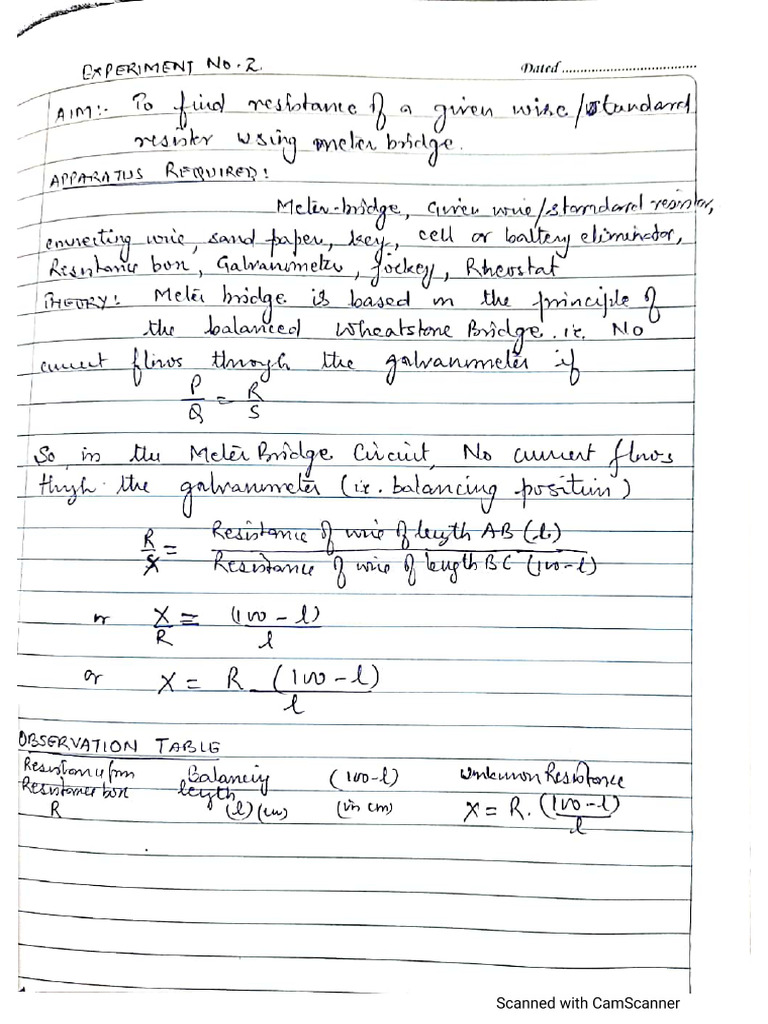 EXPERIMENT No. 2.
Dated
AIM:- To find resistance of a given wire/standard
resister using meter bridge.
APPARATUS REQUIRED:
Meter-bridge, Given wire/standard resistor,
connecting wire, sand paper, key, cell or battery eliminator,
Resistance box, Galvanometer, Jockey, Rheostat
THEORY: Meter bridge is based on the principle of
the balanced Wheatstone Bridge. i.e. No
current flows through the galvanometer if
P/Q = R/S
So, in the Meter Bridge Circuit, No current flows
thrgh the galvanometer (i.e. balancing position)
R/X = Resistance of wire of length AB (l) / Resistance of wire of length BC (100-l)
or X/R = (100-l)/l
or X = R (100-l)/l
OBSERVATION TABLE
Resistance from Resistance box R
Balancing length (l) (cm)
(100-l) (in cm)
unknown Resistance X = R. (100-l)/l
Scanned with CamScanner